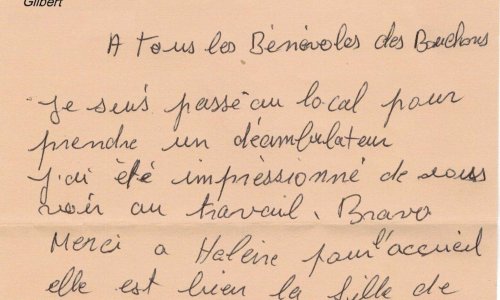 Gilbert
A Tous les Bénévoles des Bouchons
Je suis passé au local pour
prendre un déambulateur
J'ai été impréssionné de vous
voir au travail. Bravo
Merci a Hélène pour l'accueil
elle est bien la fille de